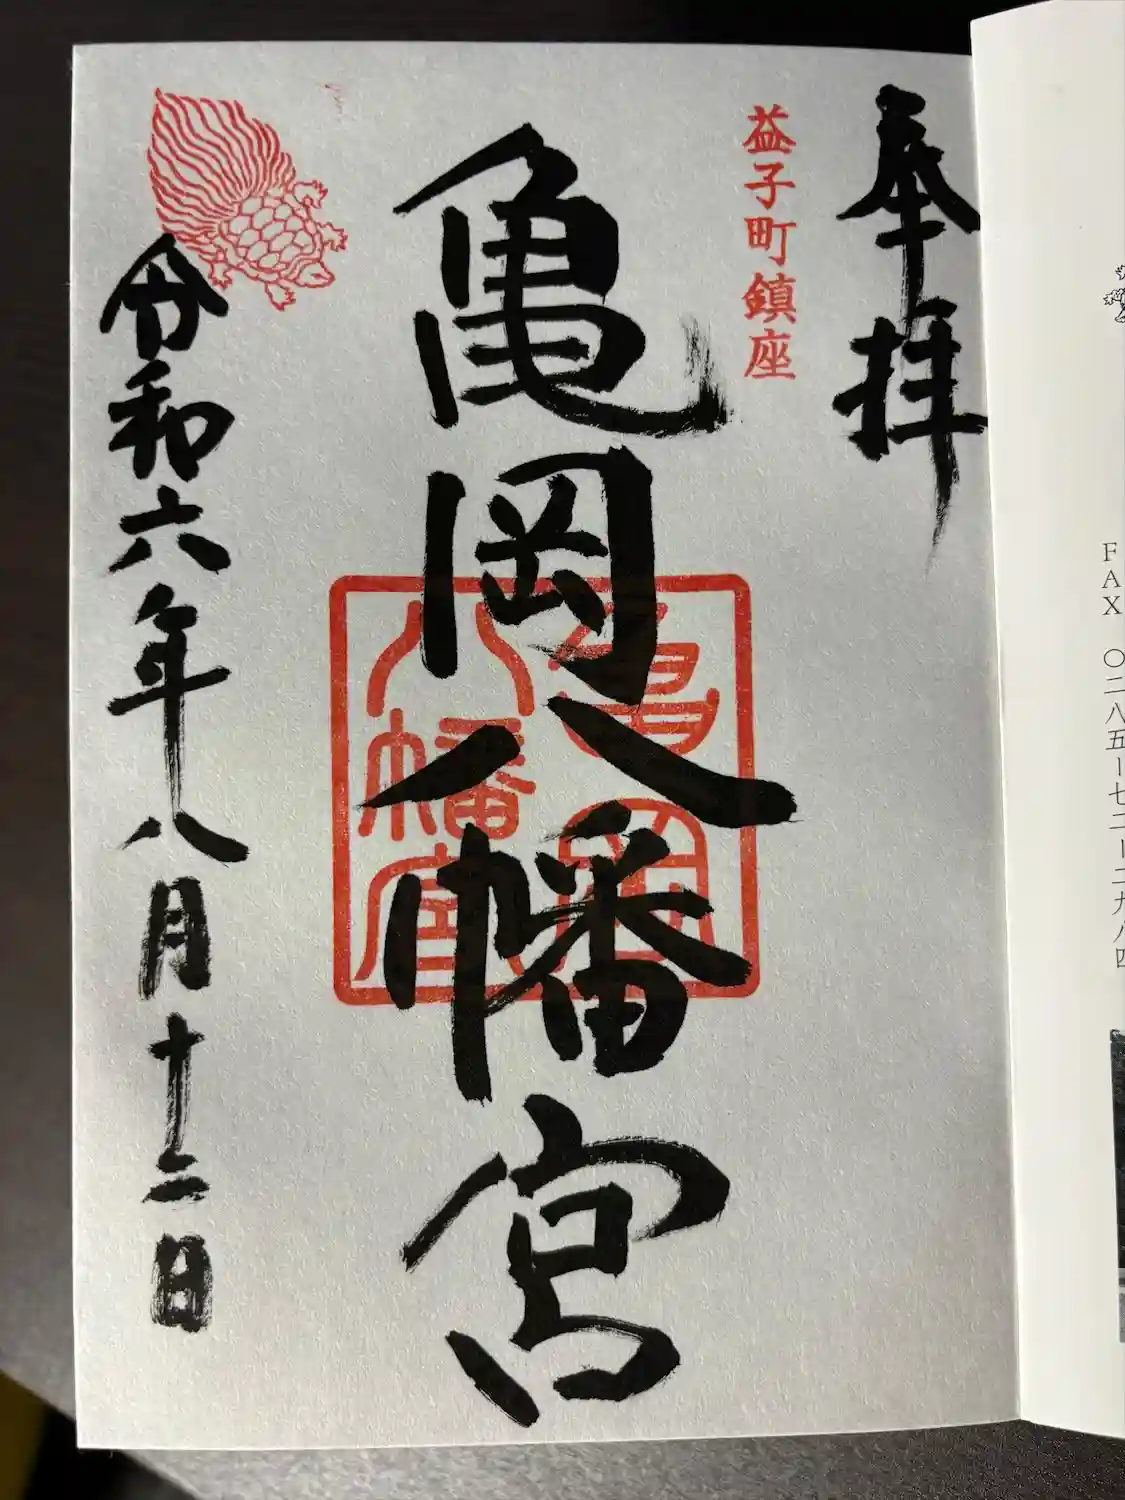 奉拝
益子町鎮座
亀岡八幡宮
亀岡
八幡宮
令和六年八月十二日
FAX 〇二八五ー七二ー二九八四